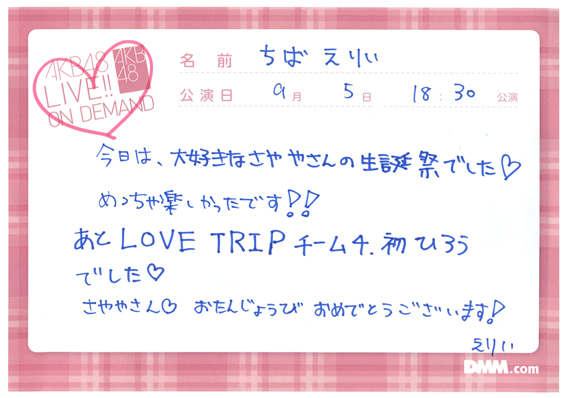 AKB48
LIVE!!
ON DEMAND
AKB
48
名前 ちば えりい
公演日 9月 5日 18:30 公演
今日は、大好きなさややさんの生誕祭でした♡
めっちゃ楽しかったです!!
あと LOVE TRIP チーム4.初ひろう
でした♡
さややさん♡ おたんじょうび おめでとうございます!
えりい
DMM.com